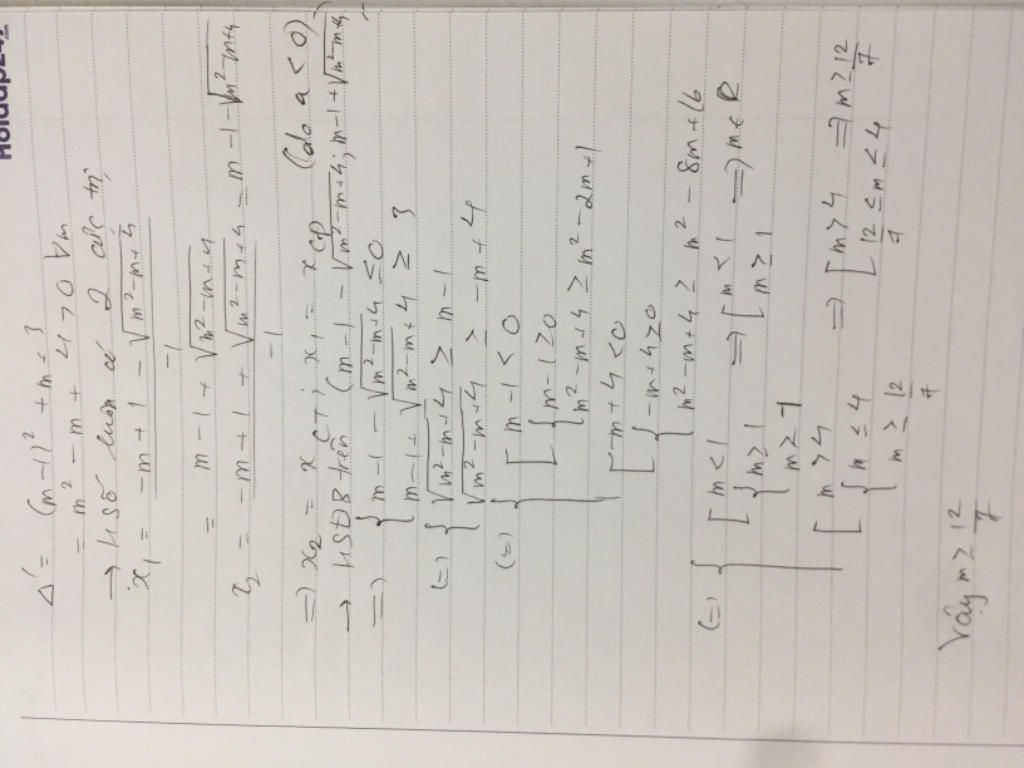 Hoidap247
Δ' = (m-1)² + m + 3
= m² - m + 4 > 0 ∀m
→ HSố luôn có 2 cực trị
x₁ = (-m + 1 - √(m² - m + 4)) / -1
= m - 1 + √(m² - m + 4)
x₂ = (-m + 1 + √(m² - m + 4)) / -1 = m - 1 - √(m² - m + 4)
=) x₂ = x CT ; x₁ = x CĐ (do a < 0)
→ HSĐB trên (m - 1 - √(m² - m + 4); m - 1 + √(m² - m + 4))
=) { m - 1 - √(m² - m + 4) ≤ 0
m - 1 + √(m² - m + 4) ≥ 3
(=) { √(m² - m + 4) ≥ m - 1
√(m² - m + 4) ≥ -m + 4
(=) { [ m - 1 < 0
[ { m - 1 ≥ 0
m² - m + 4 ≥ m² - 2m + 1
[ -m + 4 < 0
[ { -m + 4 ≥ 0
m² - m + 4 ≥ m² - 8m + 16
(=) { [ m < 1 => [ m < 1 => m ∈ R
{ m ≥ 1 [ m ≥ 1
m ≥ -1
[ m > 4 => [ m > 4 => m ≥ 12/7
{ m ≤ 4 [ 12/7 ≤ m ≤ 4
m ≥ 12/7
Vậy m ≥ 12/7